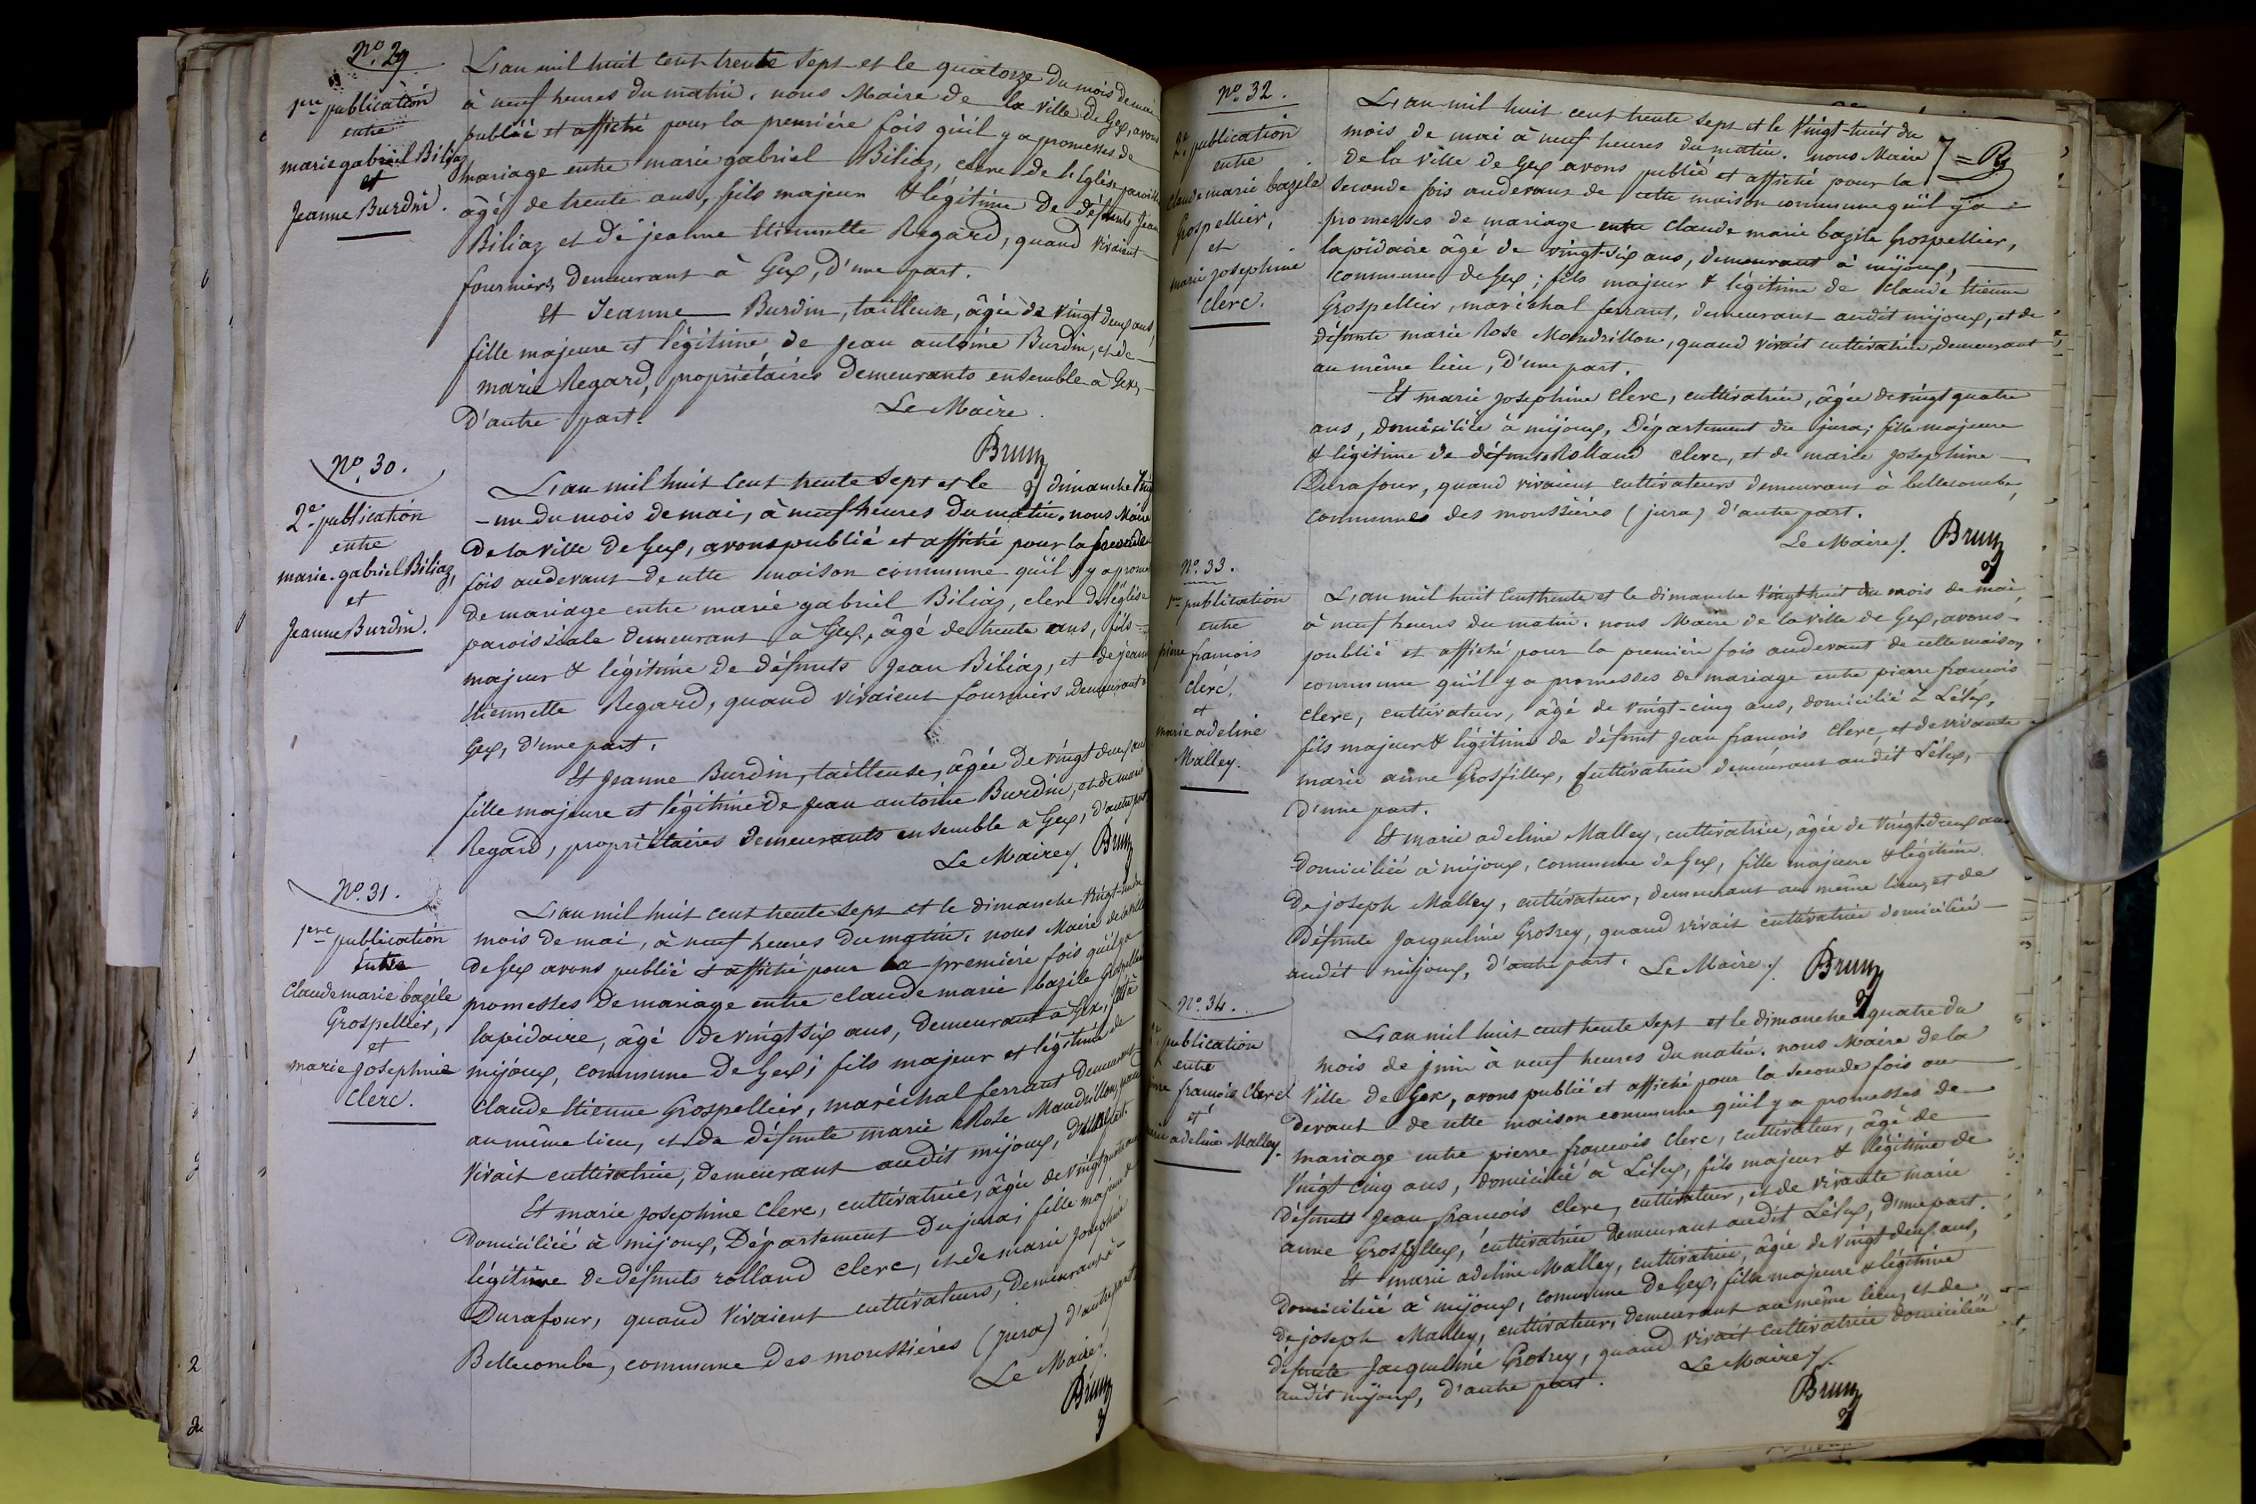 N.º 29
1re publication
entre
marie gabriel Biliaz
et
Jeanne Burdin.
L'an mil huit cent trente sept et le quatorze du mois de mai
à neuf heures du matin. nous Maire de la ville de Gex, avons
publié et affiché pour la première fois qu'il y a promesses de
mariage entre marie gabriel Biliaz, clerc de l'Eglise paroissiale
âgé de trente ans, fils majeur & légitime de défunts Jean
Biliaz et de jeanne Etiennette Regard, quand vivaient
fourniers demeurant à Gex, d'une part.
Et Jeanne Burdin, tailleuse, âgée de vingt deux ans,
fille majeure et légitime de jean antoine Burdin, et de
marie Regard, propriétaires demeurants ensemble à Gex,
d'autre part.
Le Maire.
Brun
N.º 30.
2e publication
entre
marie-gabriel Biliaz,
et
Jeanne Burdin.
L'an mil huit cent trente sept et le dimanche vingt
-un du mois de mai, à neuf heures du matin. nous Maire
de la ville de Gex, avons publié et affiché pour la seconde
fois audevant de cette maison commune qu'il y a promesses
de mariage entre marie gabriel Biliaz, clerc de l'église
paroissiale demeurant à Gex, âgé de trente ans, fils
majeur & légitime de défunts Jean Biliaz, et de jeanne
Etiennette Regard, quand vivaient fourniers demeurant à
Gex, d'une part.
Et Jeanne Burdin, tailleuse, âgée de vingt deux ans
fille majeure et légitime de jean antoine Burdin, et de marie
Regard, propriétaires demeurants ensemble à Gex, d'autre part
Le Maire. Brun
N.º 31.
1ere publication
entre
Claude marie bazile
Grospellier,
et
marie josephine
Clerc.
L'an mil huit cent trente sept et le dimanche vingt-un du
mois de mai, à neuf heures du matin. nous Maire de la ville
de Gex avons publié & affiché pour la première fois qu'il y a
promesses de mariage entre claude marie bazile Grospellier
lapidaire, âgé de vingt six ans, demeurant à
mijoux, commune de Gex; fils majeur et légitime de
claude Etienne Grospellier, maréchal ferrant demeurant
au même lieu, et de défunte marie Rose Mandrillon, quand
vivait cultivatrice, demeurant audit mijoux, d'une part.
Et marie josephine Clerc, cultivatrice, âgée de vingt quatre ans
domiciliée à mijoux, Département du jura; fille majeure &
légitime de défunts rolland Clerc, et de marie josephine
Durafour, quand vivaient cultivateurs, demeurant à
Bellecombe, commune des moussières (jura) d'autre part
Le Maire
Brun
N.º 32.
2e publication
entre
Claude marie bazile
Grospellier,
et
marie josephine
Clerc.
L'an mil huit cent trente sept et le vingt-huit du
mois de mai à neuf heures du matin. nous Maire
de la ville de Gex avons publié et affiché pour la
seconde fois audevant de cette maison commune qu'il y a
promesses de mariage entre claude marie bazile Grospellier,
lapidaire âgé de vingt-six ans, demeurant à mijoux,
commune de Gex; fils majeur & légitime de claude Etienne
Grospellier, maréchal ferrant, demeurant audit mijoux, et de
défunte marie Rose Mandrillon, quand vivait cultivatrice, demeurant
au même lieu, d'une part.
Et marie josephine Clerc, cultivatrice, âgée de vingt quatre
ans, domiciliée à mijoux, Département du jura; fille majeure
& légitime de défunts Rolland Clerc, et de marie josephine
Durafour, quand vivaient cultivateurs demeurans à bellecombe,
communes des moussières (jura) d'autre part.
Le Maire. Brun
N.º 33.
1re publication
entre
pierre françois
Clerc,
et
marie adeline
Malley.
L'an mil huit cent trente et le dimanche vingt huit du mois de mai,
à neuf heures du matin. nous Maire de la ville de Gex, avons
publié et affiché pour la première fois audevant de cette maison
commune qu'il y a promesses de mariage entre pierre françois
clerc, cultivateur, âgé de vingt-cinq ans, domicilié à Lélex,
fils majeur & légitime de défunt Jean françois clerc, et de vivante
marie anne Grosfillex, Cultivatrice demeurant audit Lélex,
d'une part.
Et marie adeline Malley, cultivatrice, âgée de vingt-deux ans
domiciliée à mijoux, commune de Gex, fille majeure & légitime
de joseph Malley, cultivateur, demeurant au même lieu, et de
défunte Jacqueline Grosrey, quand vivait cultivatrice domiciliée
audit mijoux, d'autre part. Le Maire. Brun
N.º 34.
publication
entre
françois Clerc
et
adeline Malley.
L'an mil huit cent trente sept et le dimanche quatre du
mois de juin à neuf heures du matin. nous Maire de la
ville de Gex, avons publié et affiché pour la seconde fois au
devant de cette maison commune qu'il y a promesses de
mariage entre pierre francois clerc, cultivateur, âgé de
vingt cinq ans, domicilié à Lélex, fils majeur & légitime de
défunt Jean francois Clerc, cultivateur, et de vivante marie
anne Grosfillex, cultivatrice demeurant audit Lélex, d'une part.
Et marie adeline Malley, cultivatrice, âgée de vingt deux ans,
domiciliée à mijoux, commune de Gex, fille majeure & légitime
de joseph Malley, cultivateur, demeurant au même lieu, et de
défunte Jacqueline Grosrey, quand vivait cultivatrice domiciliée
audit mijoux, d'autre part. Le Maire
Brun